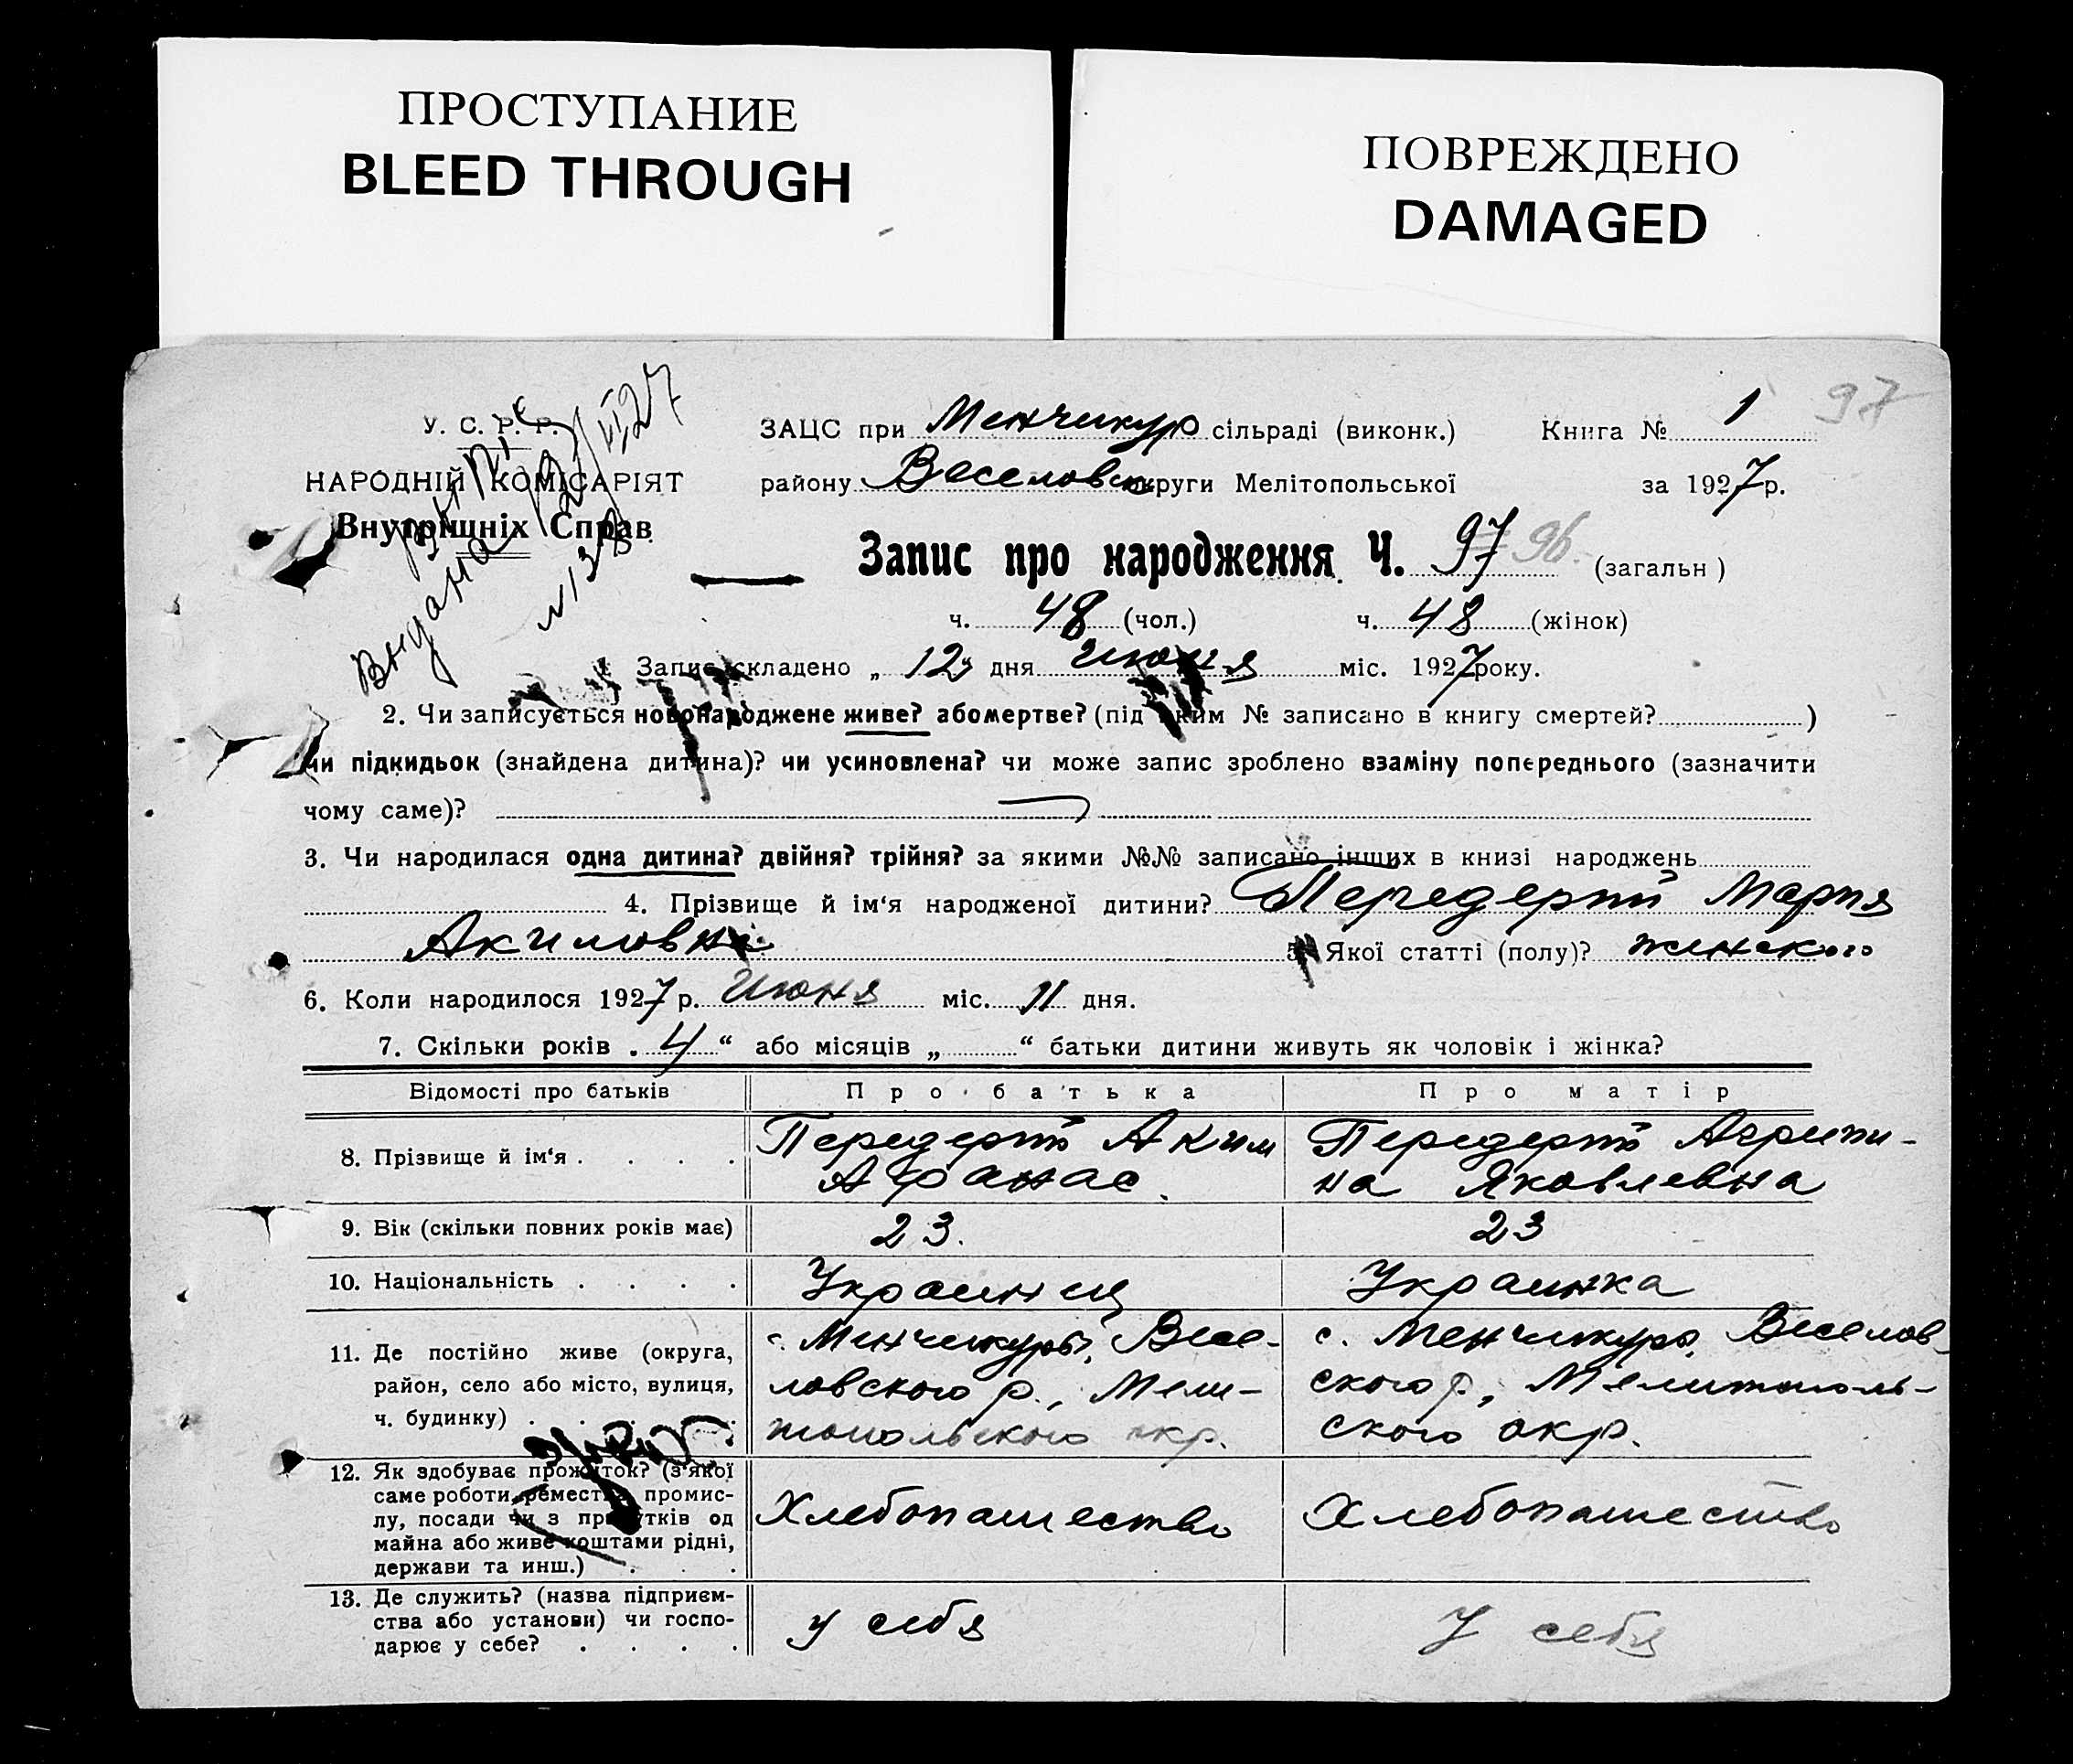 ПРОСТУПАНИЕ
BLEED THROUGH
ПОВРЕЖДЕНО
DAMAGED
97
У. С. Р. Р.
НАРОДНІЙ КОМІСАРІЯТ
Внутрішніх Справ
Выдана
№ 138
ЗАЦС при Менчикур сільраді (виконк.) Книга № 1
району Веселовск округи Мелітопольської за 1927 р.
Запис про народження Ч. 97 96 (загальн)
ч. 48 (чол.) ч. 48 (жінок)
1 Запис складено „12" дня Июня міс. 1927 року.
2. Чи записується новонароджене живе? або мертве? (під яким № записано в книгу смертей? )
чи підкидьок (знайдена дитина)? чи усиновлена? чи може запис зроблено взаміну попереднього (зазначити
чому саме)?
3. Чи народилася одна дитина? двійня? трійня? за якими №№ записано інших в книзі народжень
4. Прізвище й ім'я народженої дитини? Передерий Мария
Акимовна 5. Якої статті (полу)? женского
6. Коли народилося 1927 р. Июня міс. 11 дня.
7. Скільки років „ 4 “ або місяців „ “ батьки дитини живуть як чоловік і жінка?
Відомості про батьків Про батька Про матір
8. Прізвище й ім'я . . . . Передерий Аким Передерий Агрипи-
Афанас. на Яковлевна
9. Вік (скільки повних років має) 23. 23
10. Національність . . . . Украинец Украинка
11. Де постійно живе (округа, с. Менчикуры, Весе- с. Менчикуры, Веселов-
район, село або місто, вулиця, ловского р., Мели- ского р., Мелитополь-
ч. будинку) . . . . . топольского окр. ского окр.
12. Як здобуває прожиток? (з'якої
саме роботи, ремества, промис-
лу, посади чи з прибутків од Хлебопашество Хлебопашество
майна або живе коштами рідні,
держави та инш.) . . .
13. Де служить? (назва підприєм-
ства або установи) чи госпо- у себя У себя
дарює у себе? . . . .